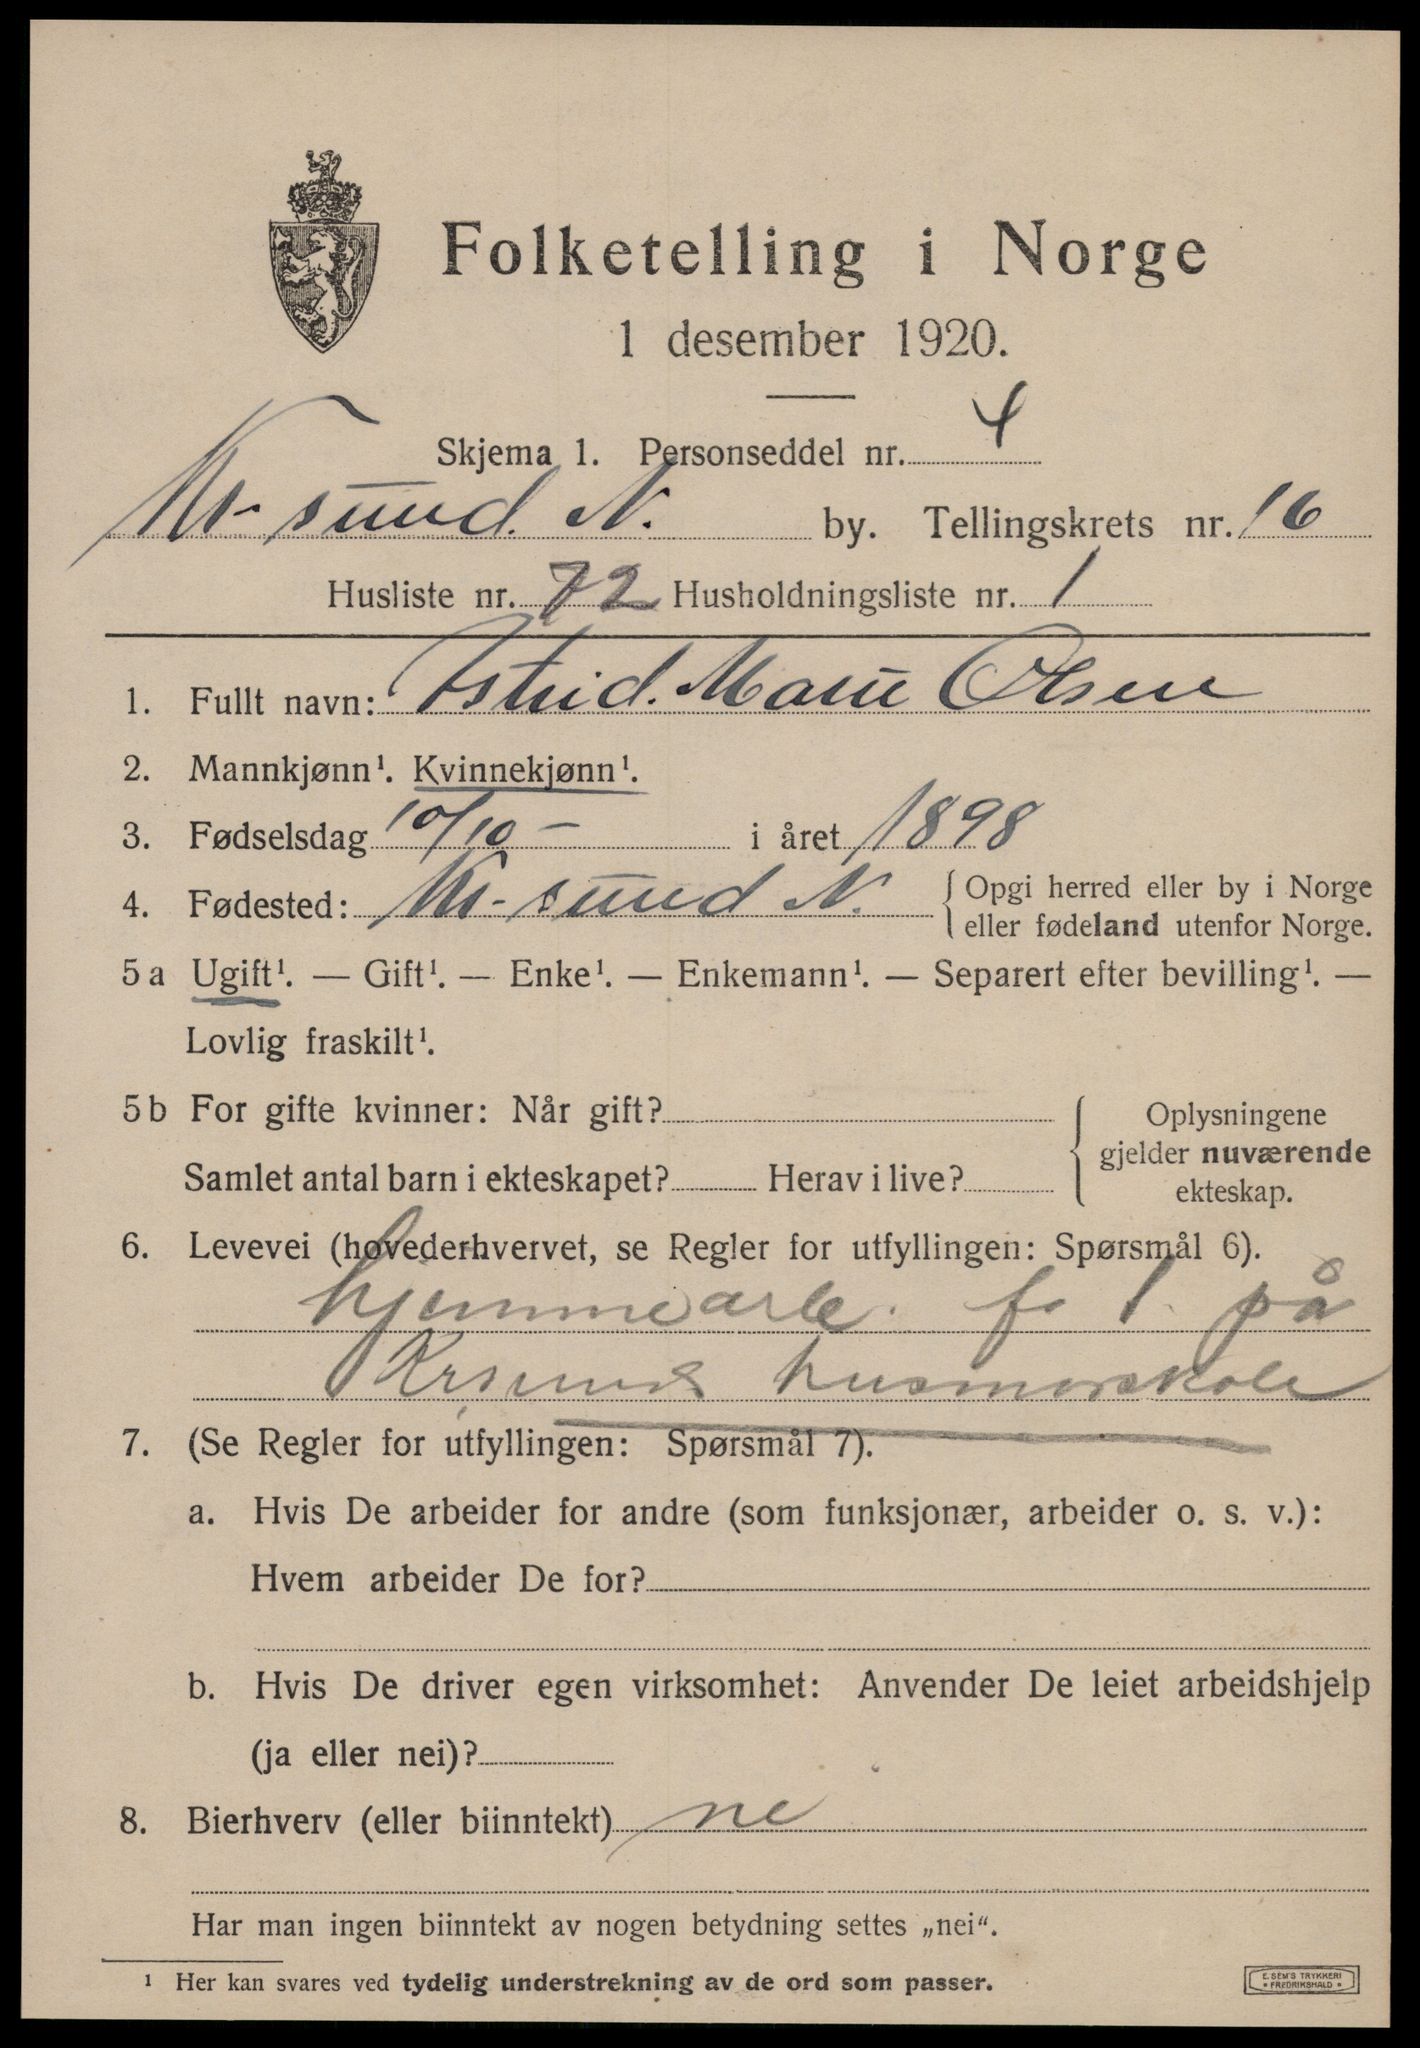 Folketelling i Norge
1 desember 1920.
Skjema 1. Personseddel nr. 4
Kr-sund. N. by. Tellingskrets nr. 16
Husliste nr. 72 Husholdningsliste nr. 1
1. Fullt navn: Astrid. Marie Olsen
2. Mannkjønn¹. Kvinnekjønn¹.
3. Fødselsdag 10/10 - i året 1898
4. Fødested: Kr-sund N. { Opgi herred eller by i Norge
eller fødeland utenfor Norge.
5 a Ugift¹. — Gift¹. — Enke¹. — Enkemann¹. — Separert efter bevilling¹. —
Lovlig fraskilt¹.
5 b For gifte kvinner: Når gift? { Oplysningene
gjelder nuværende
Samlet antal barn i ekteskapet? Herav i live?
ekteskap.
6. Levevei (hovederhvervet, se Regler for utfyllingen: Spørsmål 6).
hjemmearb. på
Krsunds husmorskole
7. (Se Regler for utfyllingen: Spørsmål 7).
a. Hvis De arbeider for andre (som funksjonær, arbeider o. s. v.):
Hvem arbeider De for?
b. Hvis De driver egen virksomhet: Anvender De leiet arbeidshjelp
(ja eller nei)?
8. Bierhverv (eller biinntekt) nei
Har man ingen biinntekt av nogen betydning settes „nei“.
¹ Her kan svares ved tydelig understrekning av de ord som passer.
E. SEM'S TRYKKERI
• FREDRIKSHALD •